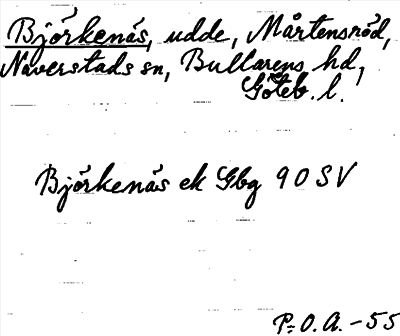 Björkenäs, udde, Mårtensröd,
Naverstads sn, Bullarens hd,
Göteb. l.
Björkenäs ek Gbg 90 SV
P=O.A. -55